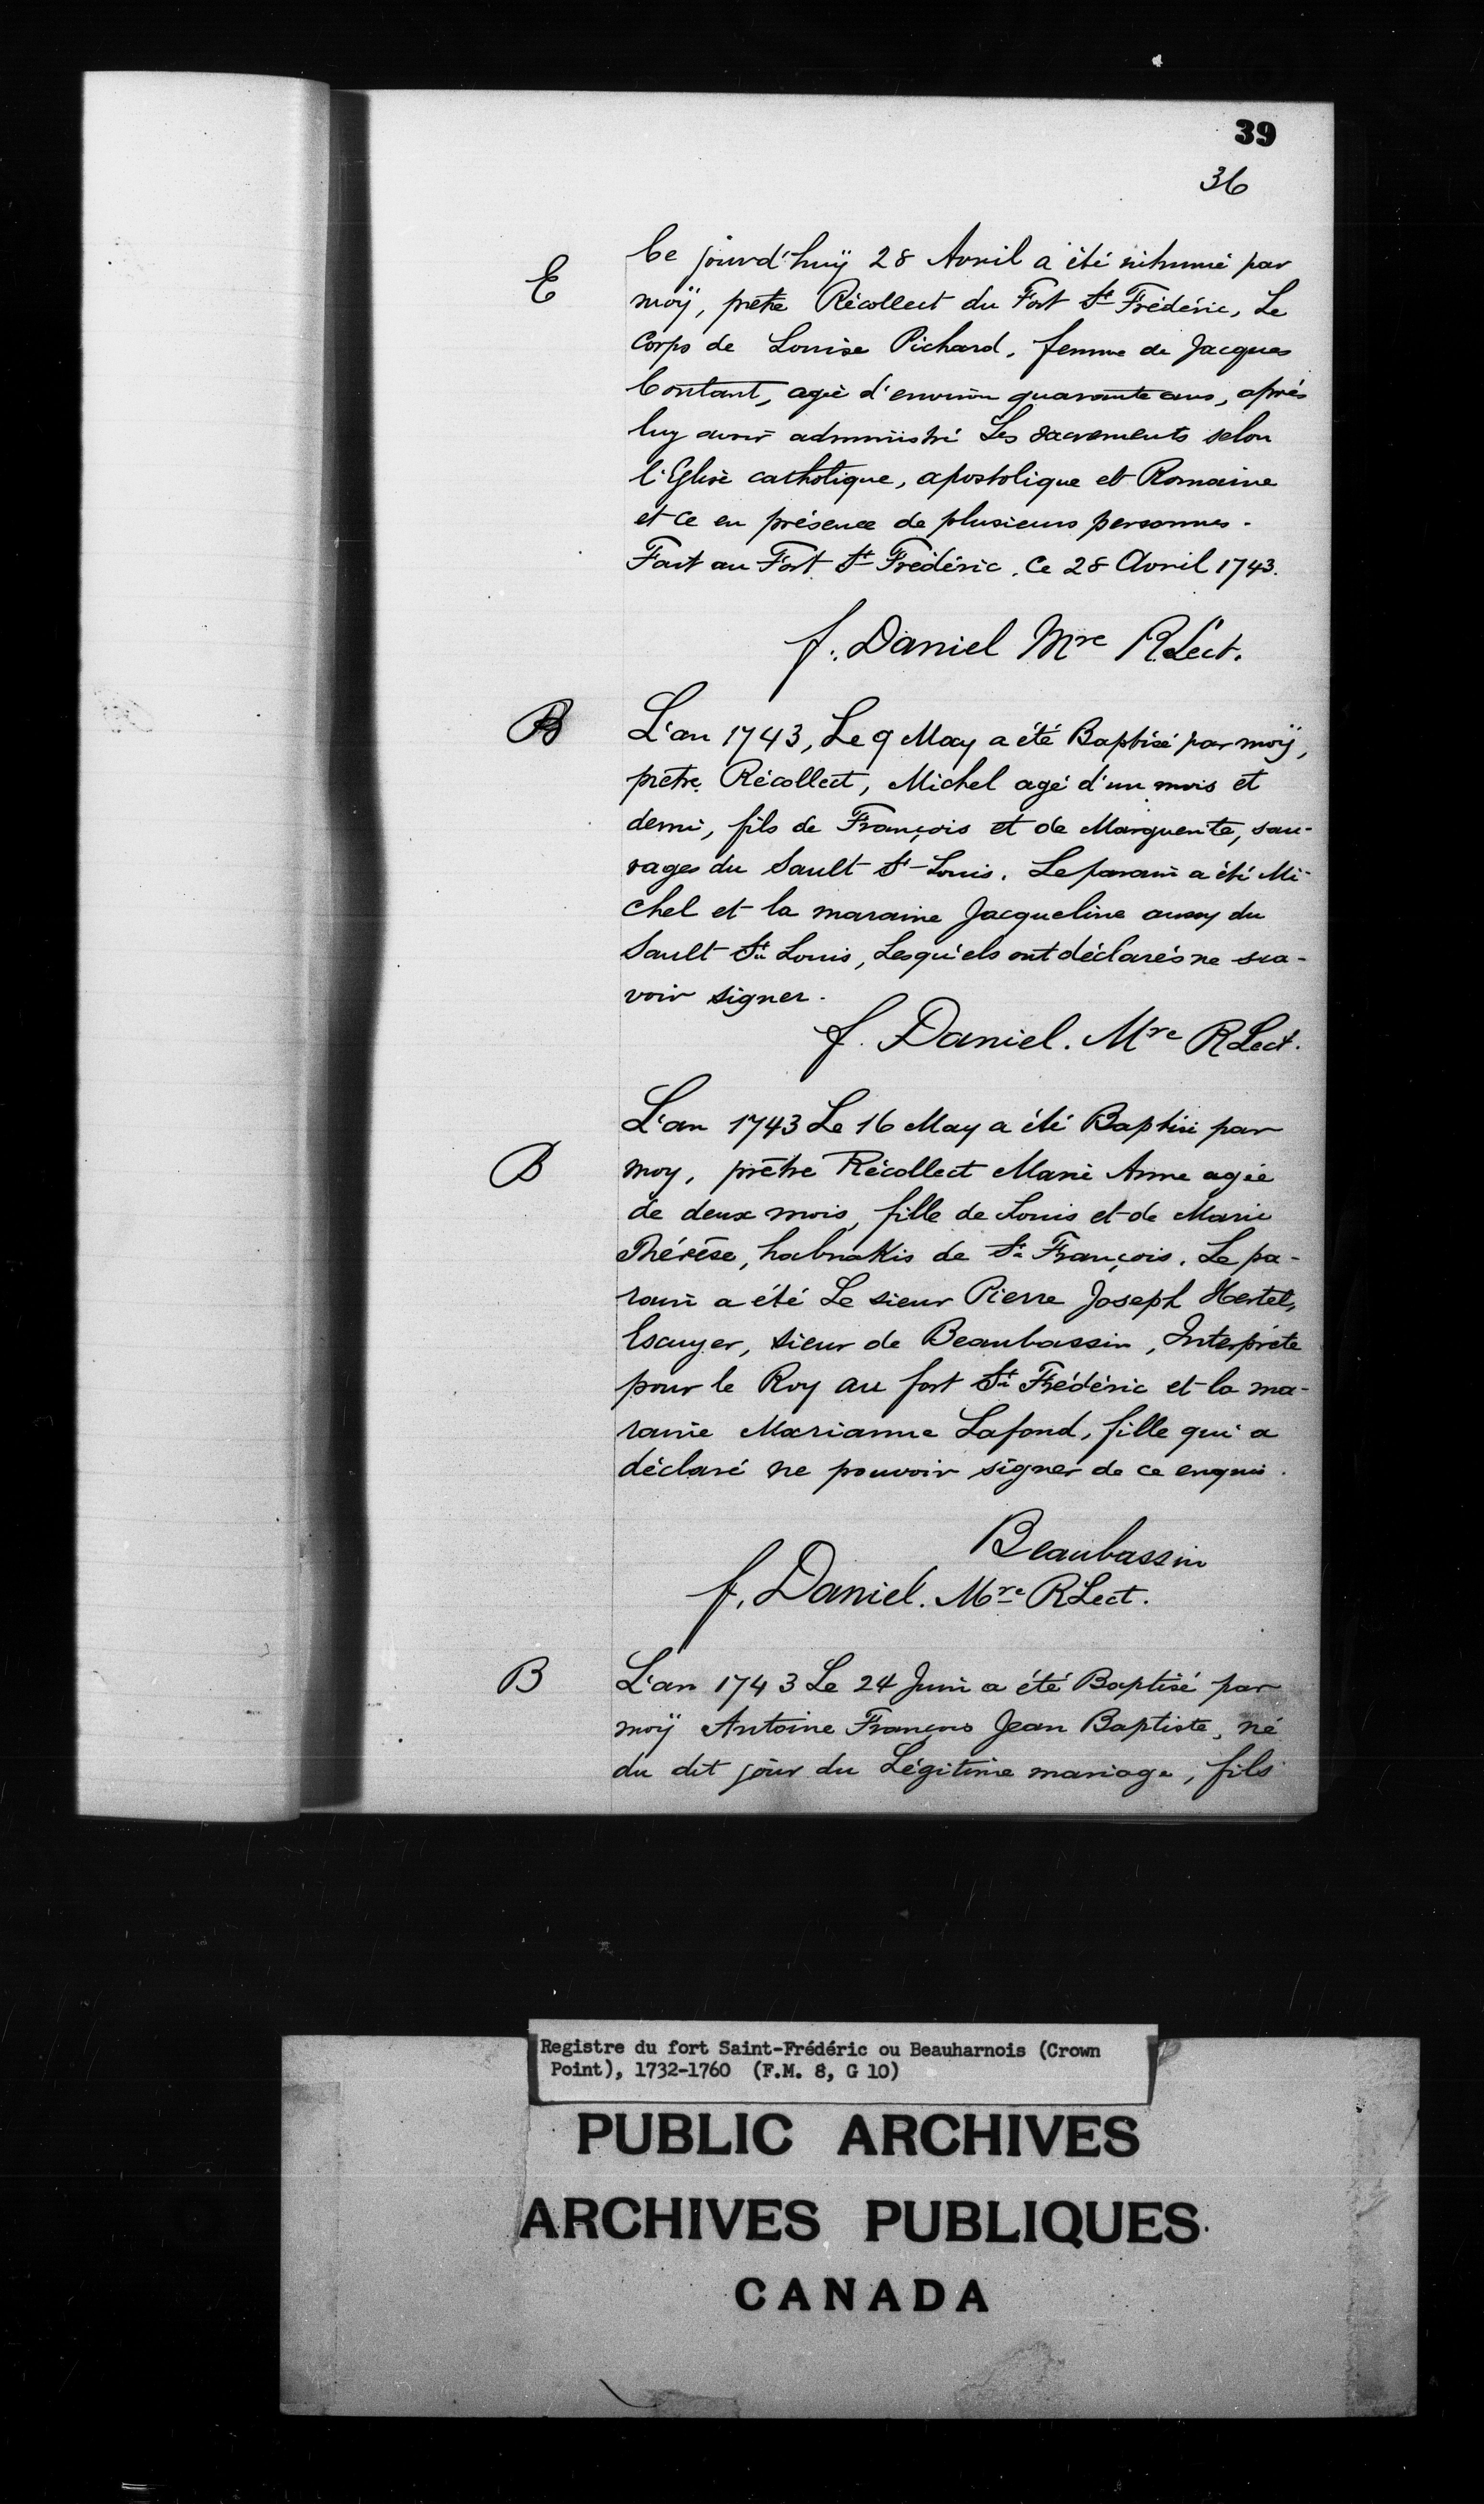 39
36
E
Ce jourd'huÿ 28 Avril a été inhumé par
moÿ, prêtre Récollect du Fort St Frédéric, Le
Corps de Louise Pichard, femme de Jacques
Contant, agée d'environ quarante ans, après
luy avoir administré Les sacrements selon
l'Eglise catholique, apostolique et Romaine
et ce en présence de plusieurs personnes.
Fait au Fort St Frédéric. Ce 28 Avril 1743.
f. Daniel Mre RLect.
B
L'an 1743, Le 9 May a été Baptisé par moÿ,
prêtre Récollect, Michel agé d'un mois et
demi, fils de François et de Marguerite, sau-
vages du Sault St Louis. Le parain a été Mi-
chel et la maraine Jacqueline aussy du
Sault St Louis, Lesquels ont déclarés ne sca-
voir signer.
f. Daniel. Mre RLect.
B
L'an 1743 Le 16 May a été Baptisé par
moy, prêtre Récollect Marie Anne agée
de deux mois, fille de Louis et de Marie
Thérèse, habnakis de St François. Le pa-
rain a été Le sieur Pierre Joseph Hertel,
Escuyer, sieur de Beaubassin, Interprète
pour le Roy au fort St Frédéric et la ma-
raine Marianne Lafond, fille qui a
déclaré ne pouvoir signer de ce enquis.
Beaubassin
f. Daniel. Mre RLect.
B
L'an 1743 Le 24 Juin a été Baptisé par
moÿ Antoine François Jean Baptiste, né
du dit jour du Légitime mariage, fils
Registre du fort Saint-Frédéric ou Beauharnois (Crown
Point), 1732-1760 (F.M. 8, G 10)
PUBLIC ARCHIVES
ARCHIVES PUBLIQUES
CANADA